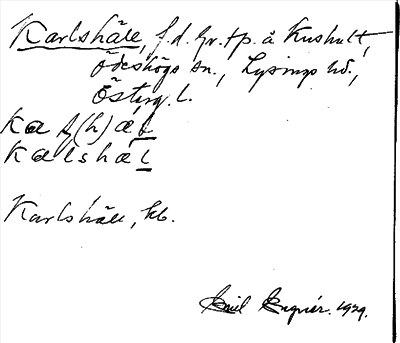 Karlshäll, f.d. Gr.tp. å Kushult,
Ödeshögs sn., Lysings hd.,
Österg. l.
Kalshäl
Karlshäll, kb.
Emil Enguér. 1929.